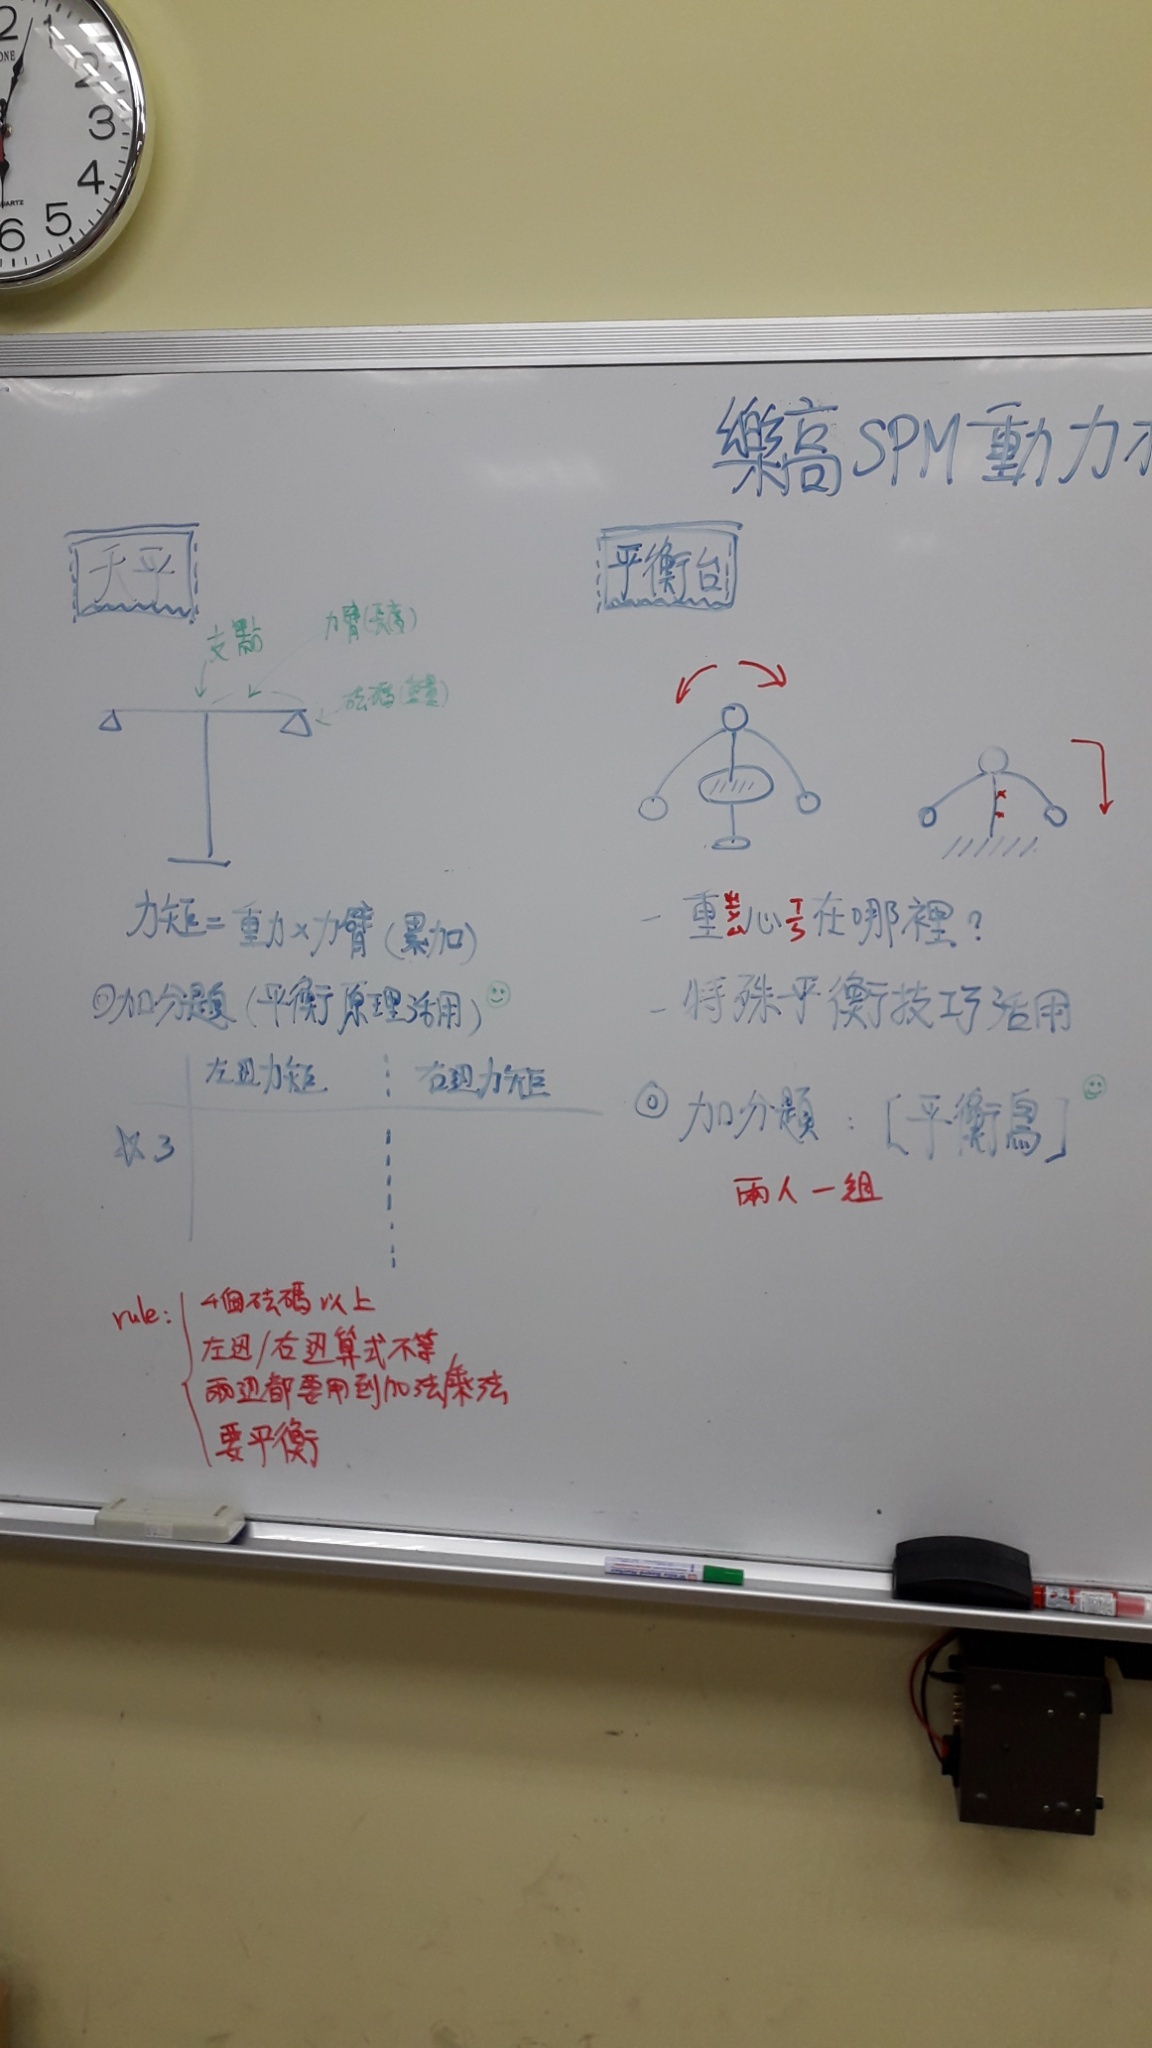 2
1
2
3
4
5
6
樂高SPM動力
天平
支點
力臂(長度)
砝碼(重量)
力矩=重力×力臂(累加)
◎加分題(平衡原理活用)
左边力矩
右边力矩
☆3
rule:
4個砝碼以上
左边/右边算式不等
兩边都要用到加法乘法
要平衡
平衡台
- 重ㄓㄨㄥˋ心ㄒㄧㄣ在哪裡?
- 特殊平衡技巧活用
◎加分題:[平衡鳥]
兩人一組